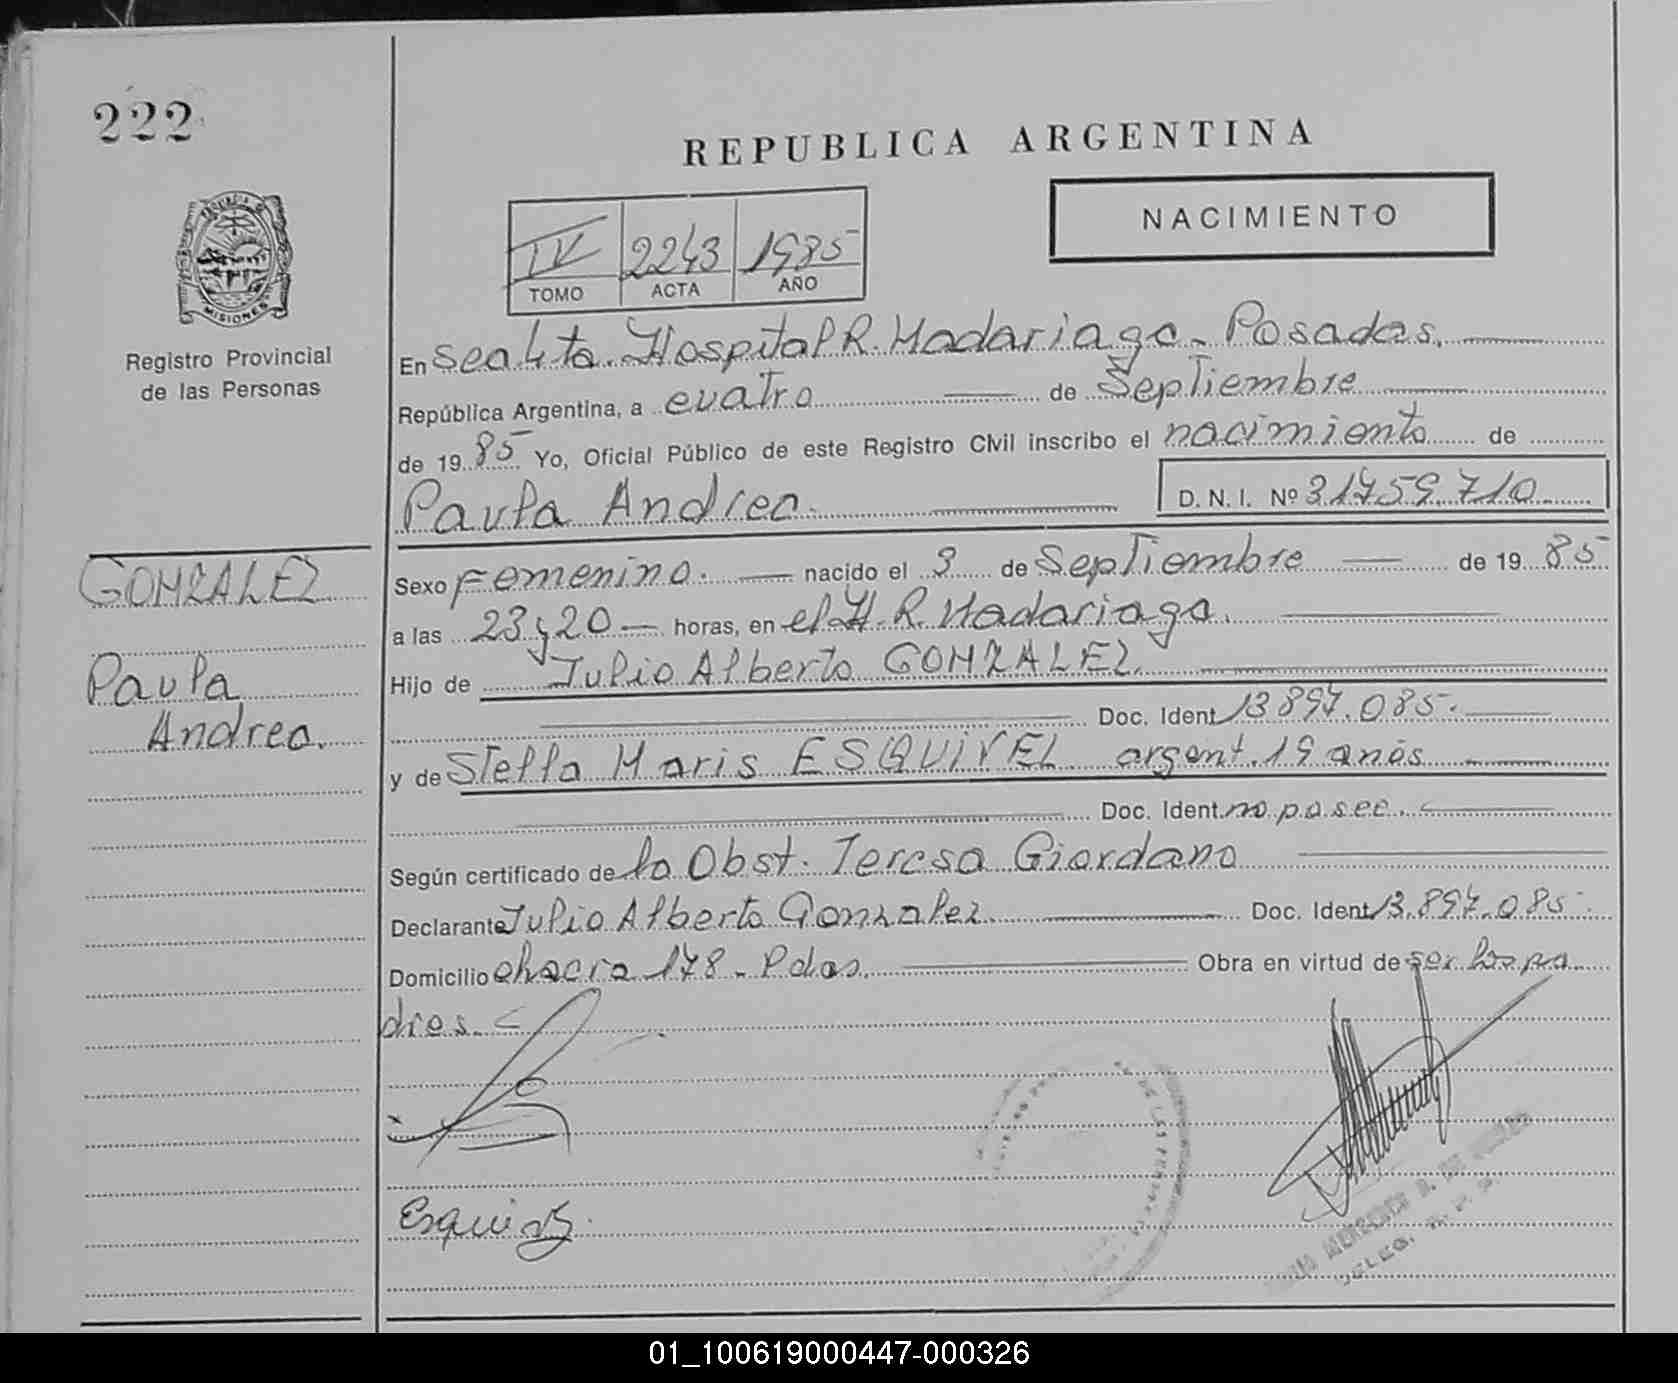 222
REPUBLICA ARGENTINA
NACIMIENTO
IV 2243 1985
TOMO ACTA AÑO
MISIONES
Registro Provincial
de las Personas
En Sec 4ta. Hospital R. Madariaga - Posadas.
República Argentina, a cuatro de Septiembre
de 1985 Yo, Oficial Público de este Registro Civil inscribo el nacimiento de
Paula Andrea. D. N. I. Nº 31759.710
GONZALEZ
Paula
Andrea.
Sexo Femenino. nacido el 3 de Septiembre de 1985
a las 23 y 20 horas, en el H. R. Madariaga.
Hijo de Julio Alberto GONZALEZ.
Doc. Ident 13897.085.
y de Stella Maris ESQUIVEL argent. 19 años
Doc. Ident. no posee.
Según certificado de la Obst. Teresa Giordano
Declarante Julio Alberto Gonzalez. Doc. Ident 13.897.085.
Domicilio chacra 178 - Pdas. Obra en virtud de ser los pa
dres.
Esquivel
01_100619000447-000326